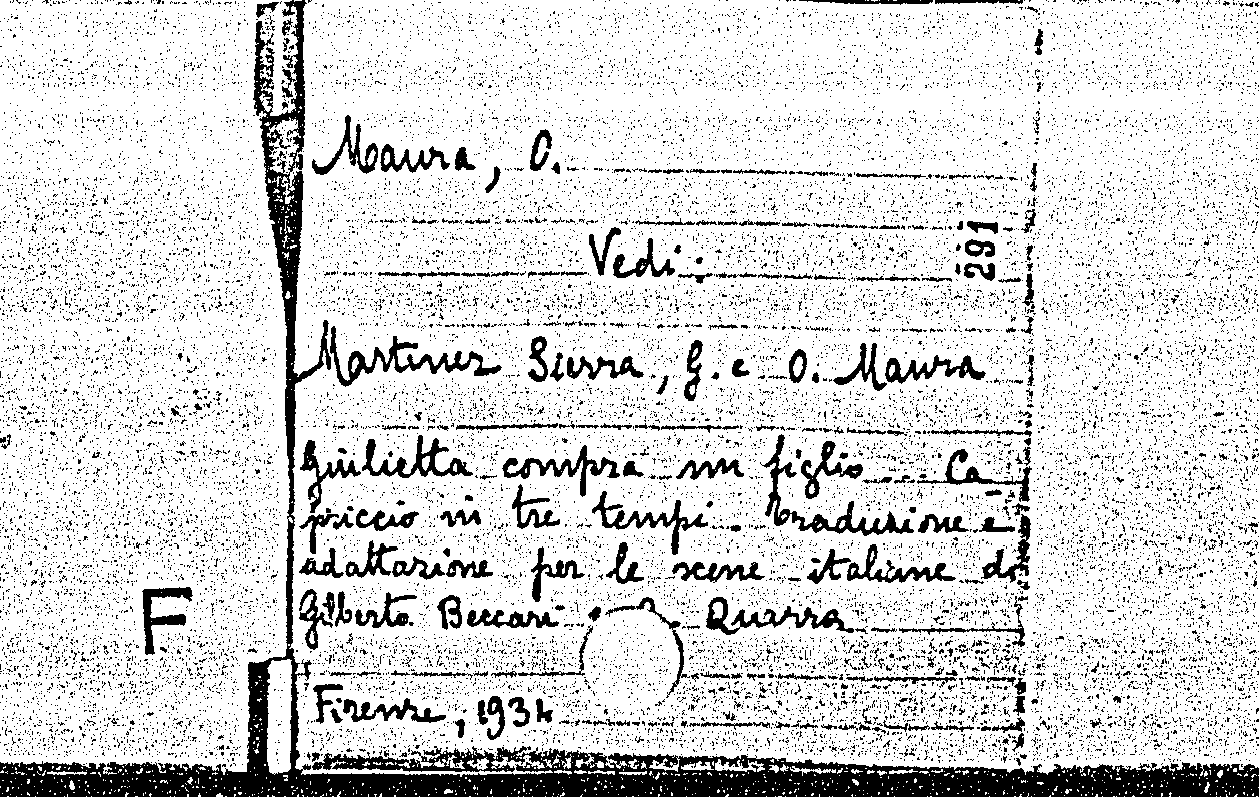 Maura, O.
Vedi:
291
Martinez Sierra, G. e O. Maura
Giulietta compra un figlio... Ca_
priccio in tre tempi. Traduzione e
adattazione per le scene italiane di
Gilberto Beccari Quarra
F
Firenze, 1934